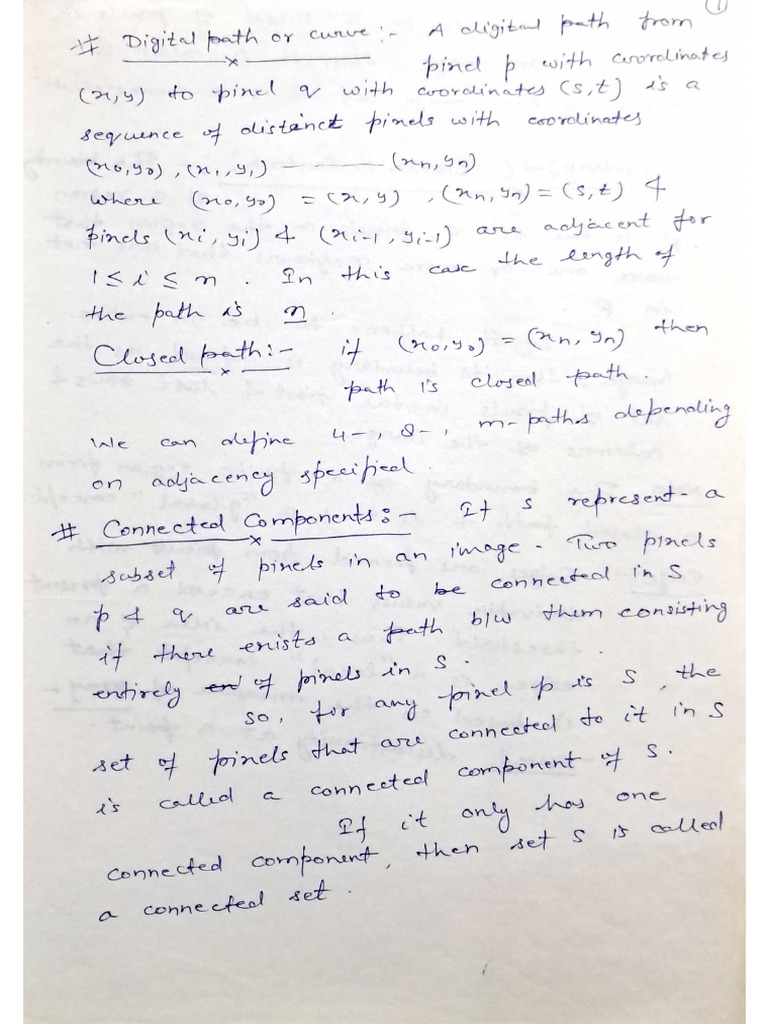 ①
# Digital path or curve :- A digital path from
pixel p with coordinates
(x,y) to pixel q with coordinates (s,t) is a
sequence of distinct pixels with coordinates
(x0,y0), (x1,y1) ------- (xn,yn)
where (x0,y0) = (x,y), (xn,yn) = (s,t) &
pixels (xi, yi) & (xi-1, yi-1) are adjacent for
1 ≤ i ≤ n. In this case the length of
the path is n.
Closed path :- if (x0,y0) = (xn, yn) then
path is closed path.
We can define 4-, 8-, m-paths depending
on adjacency specified.
# Connected Components :- If S represent a
subset of pixels in an image. Two pixels
p & q are said to be connected in S
if there exists a path b/w them consisting
entirely of pixels in S.
so, for any pixel p is S, the
set of pixels that are connected to it in S
is called a connected component of S.
If it only has one
connected component, then set S is called
a connected set.